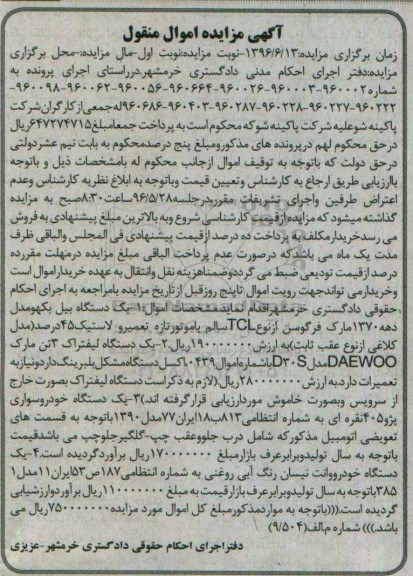 آگهی مزایده اموال منقول
زمان برگزاری مزایده:۱۳۹۶/۶/۱۳-نوبت مزایده:نوبت اول-مال مزایده:-محل برگزاری
مزایده:دفتر اجرای احکام مدنی دادگستری خرمشهر.درراستای اجرای پرونده به
شماره ۹۶۰۰۰۲-۹۶۰۰۰۳-۹۶۰۰۲۶-۹۶۰۶۶۴-۹۶۰۰۵۶-۹۶۰۰۶۲-۹۶۰۰۹۸-
۹۶۰۲۲۲-۹۶۰۲۲۷-۹۶۰۲۲۸-۹۶۰۲۸۷-۹۶۰۴۰۳-۹۶۰۶۸۶له جمعی ازکارگران شرکت
پاکینه شوعلیه شرکت پاکینه شوکه محکوم است به پرداخت جمعامبلغ ۶۴۷۲۷۴۷۱۵ریال
درحق محکوم لهم درپرونده های مذکورومبلغ پنج درصدمحکوم به بابت نیم عشردولتی
درحق دولت که باتوجه به توقیف اموال ازجانب محکوم له بامشخصات ذیل و باتوجه
باارزیابی طریق ارجاع به کارشناس وتعیین قیمت وباتوجه به ابلاغ نظریه کارشناس وعدم
اعتراض طرفین واجرای تشریفات مقرردرجلسه ۹۶/۵/۲۸ساعت ۸:۳۰صبح به مزایده
گذاشته میشود که مزایده ازقیمت کارشناسی شروع وبه بالاترین مبلغ پیشنهادی به فروش
می رسدخریدارمکلف به پرداخت ده درصد ازقیمت پیشنهادی فی المجلس والباقی ظرف
مدت یک ماه می باشدکه درصورت عدم پرداخت الباقی مبلغ مزایده درمهلت مقررده
درصد ازقیمت تودیعی ضبط می گرددوضمناهزینه نقل وانتقال به عهده خریداراموال است
وخریدارمی تواندجهت رویت اموال تاپنج روزقبل ازتاریخ مزایده بامراجعه به اجرای احکام
حقوقی دادگستری خرمشهراقدام نماید.مشخصات اموال ۱-یک دستگاه بیل بکهومدل
دهه ۱۳۷۰مارک فرگوسن ازنوع TCLسالم یاموتورتازه تعمیرو لاستیک ۴۵درصد(مدل
کلاغی ازنوع عقب ثابت)به ارزش ۱۹۰۰۰۰۰۰۰ریال.۲-یک دستگاه لیفتراک ۳تن مارک
DAEWOOمدل D۳۰Sباشماره اموال ۰۴۳۹کسل دستگاه مشکل بلبرینگ داردونیازبه
تعمیرات دارد.به ارزش ۲۸۰۰۰۰۰۰۰ریال(لازم به ذکراست دستگاه لیفتراک بصورت خارج
از سرویس وبصورت خاموش موردارزیابی قرارگرفته اند)۳-یک دستگاه خودروسواری
پژو۴۰۵نقره ای به شماره انتظامی۸۱۳ب۱۸ایران۷۷مدل ۱۳۹۰باتوجه به قسمت های
تعویضی اتومبیل مذکورکه شامل درب جلووعقب چپ-گلگیرجلوچپ می باشدقیمت
باتوجه به سال تولیدوبرابرعرف بازارمبلغ ۱۷۰۰۰۰۰۰۰ریال برآوردگردیده است.۴-یک
دستگاه خودرووانت نیسان رنگ آبی روغنی به شماره انتظامی۱۸۷ص۵۳ایران۱۱مدل۱
۳۸۵باتوجه به سال تولیدوبرابرعرف بازارقیمت به مبلغ ۱۱۰۰۰۰۰۰۰ریال برآوردوارزشیابی
گردیده است.(((باتوجه به مواردمذکورمبلغ کل اموال مورد مزایده ۷۵۰۰۰۰۰۰۰ریال می
باشد.))) شماره م.الف(۹/۵۰۴)
دفتراجرای احکام حقوقی دادگستری خرمشهر-عزیزی